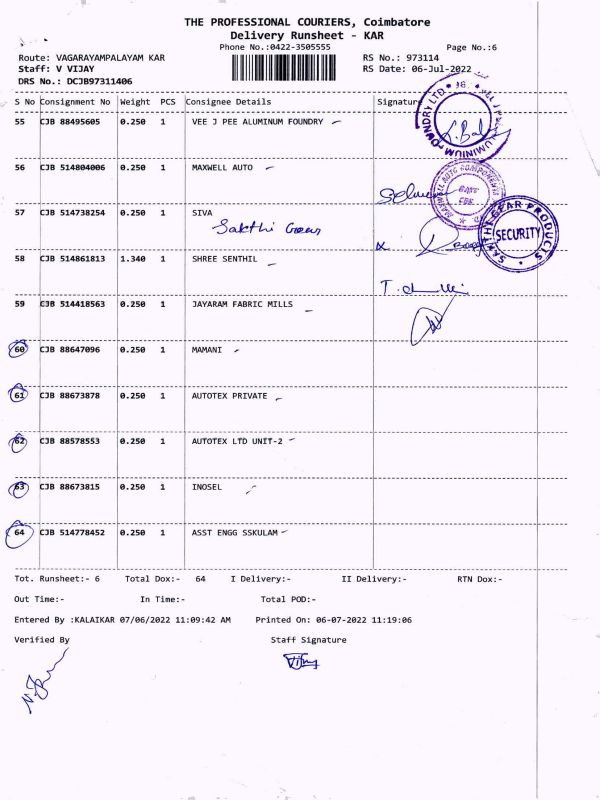 THE PROFESSIONAL COURIERS, Coimbatore
Delivery Runsheet - KAR
Phone No.:0422-3505555
Page No.:6
Route: VAGARAYAMPALAYAM KAR RS No.: 973114
Staff: V VIJAY RS Date: 06-Jul-2022
DRS No.: DCJB97311406
S No Consignment No Weight PCS Consignee Details Signature
55 CJB 88495605 0.250 1 VEE J PEE ALUMINUM FOUNDRY
56 CJB 514804006 0.250 1 MAXWELL AUTO
57 CJB 514738254 0.250 1 SIVA
Sakthi Gears
SECURITY
SAKTHI GEAR PRODUCTS
58 CJB 514861813 1.340 1 SHREE SENTHIL
59 CJB 514418563 0.250 1 JAYARAM FABRIC MILLS
60 CJB 88647096 0.250 1 MAMANI
61 CJB 88673878 0.250 1 AUTOTEX PRIVATE
62 CJB 88578553 0.250 1 AUTOTEX LTD UNIT-2
63 CJB 88673815 0.250 1 INOSEL
64 CJB 514778452 0.250 1 ASST ENGG SSKULAM
Tot. Runsheet:- 6 Total Dox:- 64 I Delivery:- II Delivery:- RTN Dox:-
Out Time:- In Time:- Total POD:-
Entered By :KALAIKAR 07/06/2022 11:09:42 AM Printed On: 06-07-2022 11:19:06
Verified By Staff Signature